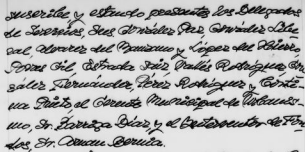 suscribe, y estando presentes los Delegados
de Servicios, Sres González Paz, González Libe
ral, Alvarez del Manzano y López del Hierro,
Sres. Gil, Estrada Saiz, Vallés Rodríguez, Gon
zález Fernández, Pérez Rodríguez y
na Prieto el Gerente Municipal de Urbanis-
mo, Sr. Larriza Díaz, y el Interventor de Fon
dos, Sr. Arnau Bernia.